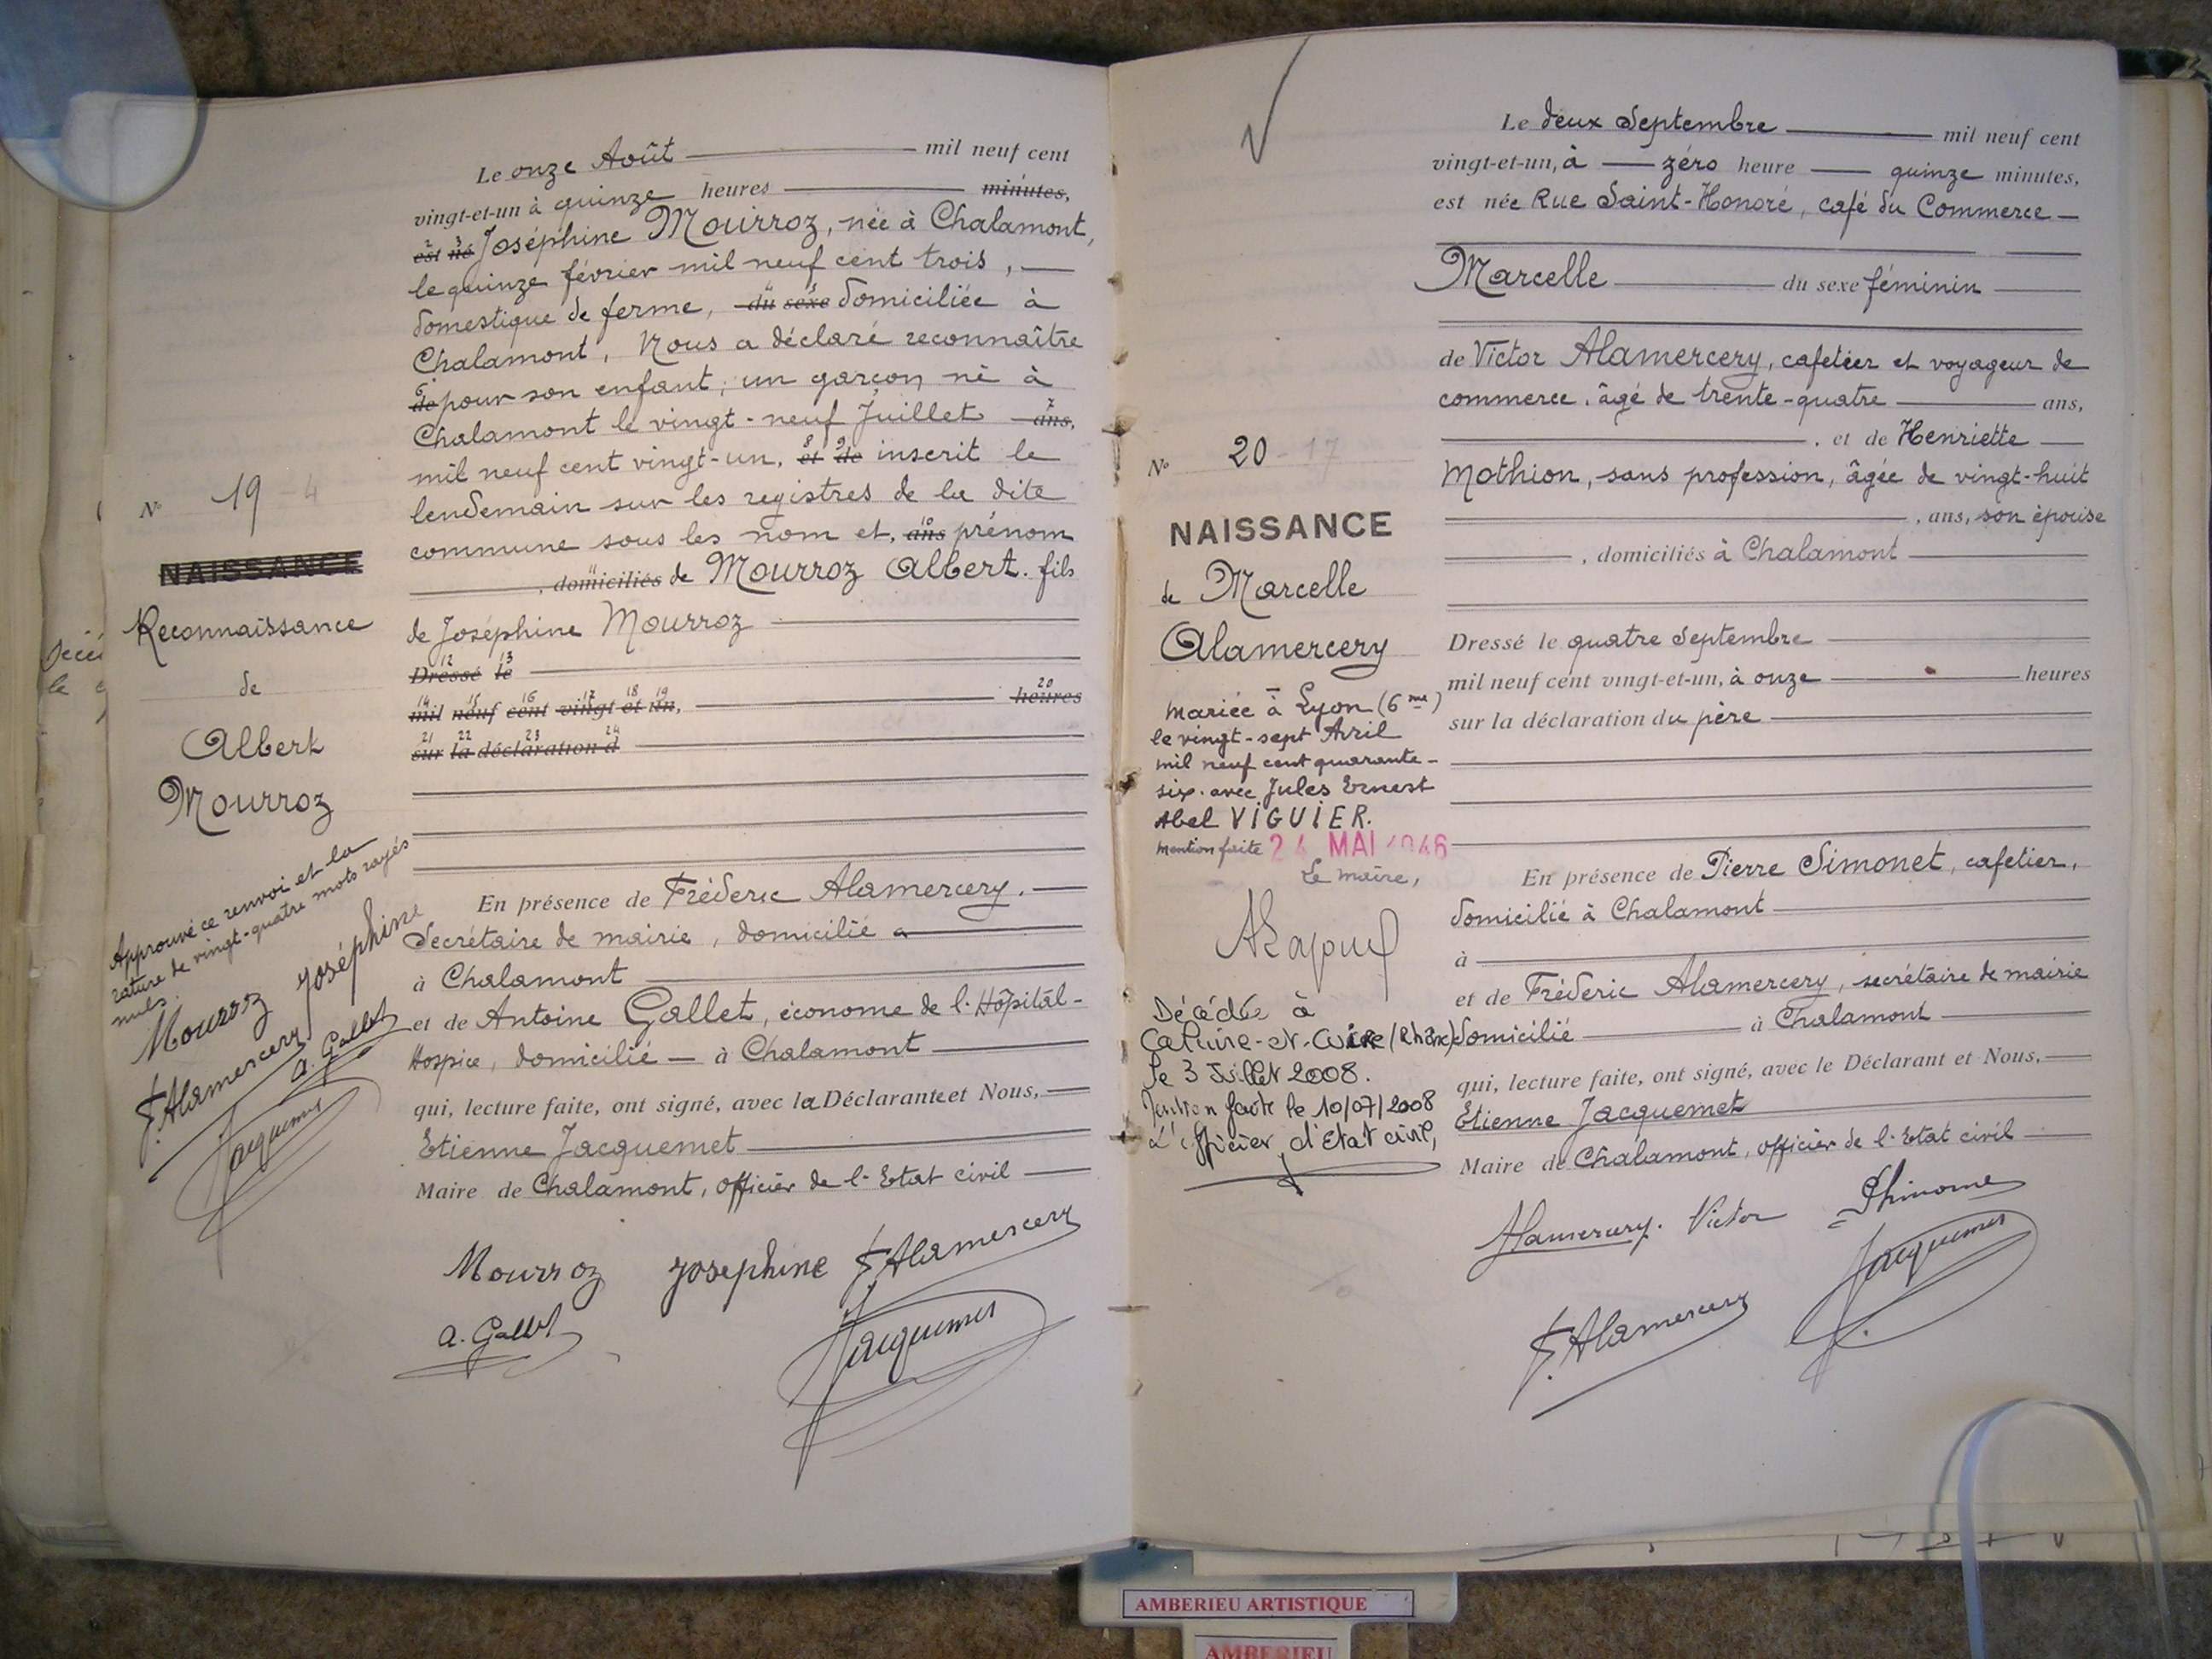 Le onze Août mil neuf cent
vingt-et-un à quinze heures minutes,
est né Joséphine Mourroz, née à Chalamont,
le quinze février mil neuf cent trois,
domestique de ferme, du sexe domiciliée à
Chalamont, Nous a déclaré reconnaître
de pour son enfant, un garçon né à
Chalamont le vingt-neuf Juillet ans,
mil neuf cent vingt-un, et de inscrit le
lendemain sur les registres de la dite
commune sous les nom et, ans prénom
, domiciliés de Mourroz Albert. fils
de Joséphine Mourroz
Dressé le
mil neuf cent vingt et un, heures
sur la déclaration d
En présence de Fréderic Alamercery.
Secrétaire de mairie, domicilié a
à Chalamont
et de Antoine Gallet, économe de l'Hôpital-
Hospice, domicilié — à Chalamont
qui, lecture faite, ont signé, avec la Déclarante et Nous,
Etienne Jacquemet
Maire de Chalamont, officier de l'Etat civil
Mourroz Joséphine F. Alamercery
A. Gallet
Jacquemet
N° 19 - 4
NAISSANCE
Reconnaissance
de
Albert
Mourroz
Approuvé ce renvoi et la
rature de vingt-quatre mots rayés
nuls.
Mourroz Joséphine
F. Alamercery A. Gallet
Jacquemet
Le deux Septembre mil neuf cent
vingt-et-un, à — zéro heure — quinze minutes,
est née Rue Saint-Honoré, café du Commerce
Marcelle du sexe féminin
de Victor Alamercery, cafetier et voyageur de
commerce, âgé de trente-quatre ans,
, et de Henriette
Mothion, sans profession, âgée de vingt-huit
, ans, son épouse
, domiciliés à Chalamont
Dressé le quatre Septembre
mil neuf cent vingt-et-un, à onze heures
sur la déclaration du père
En présence de Pierre Simonet, cafetier,
domicilié à Chalamont
à
et de Fréderic Alamercery, secrétaire de mairie
domicilié à Chalamont
qui, lecture faite, ont signé, avec le Déclarant et Nous,
Etienne Jacquemet
Maire de Chalamont, officier de l'Etat civil
Alamercery. Victor
F. Alamercery Jacquemet
N° 20 - 17
NAISSANCE
de Marcelle
Alamercery
Mariée à Lyon (6me)
le vingt-sept Avril
mil neuf cent quarante-
six. avec Jules Ernest
Abel VIGUIER.
mention faite 24 MAI 1946
Le maire,
Décédée à
Caluire-et-Cuire (Rhône)
le 3 Juillet 2008.
Mention faite le 10/07/2008
L'officier d'Etat civil,
AMBERIEU ARTISTIQUE
AMBERIEU